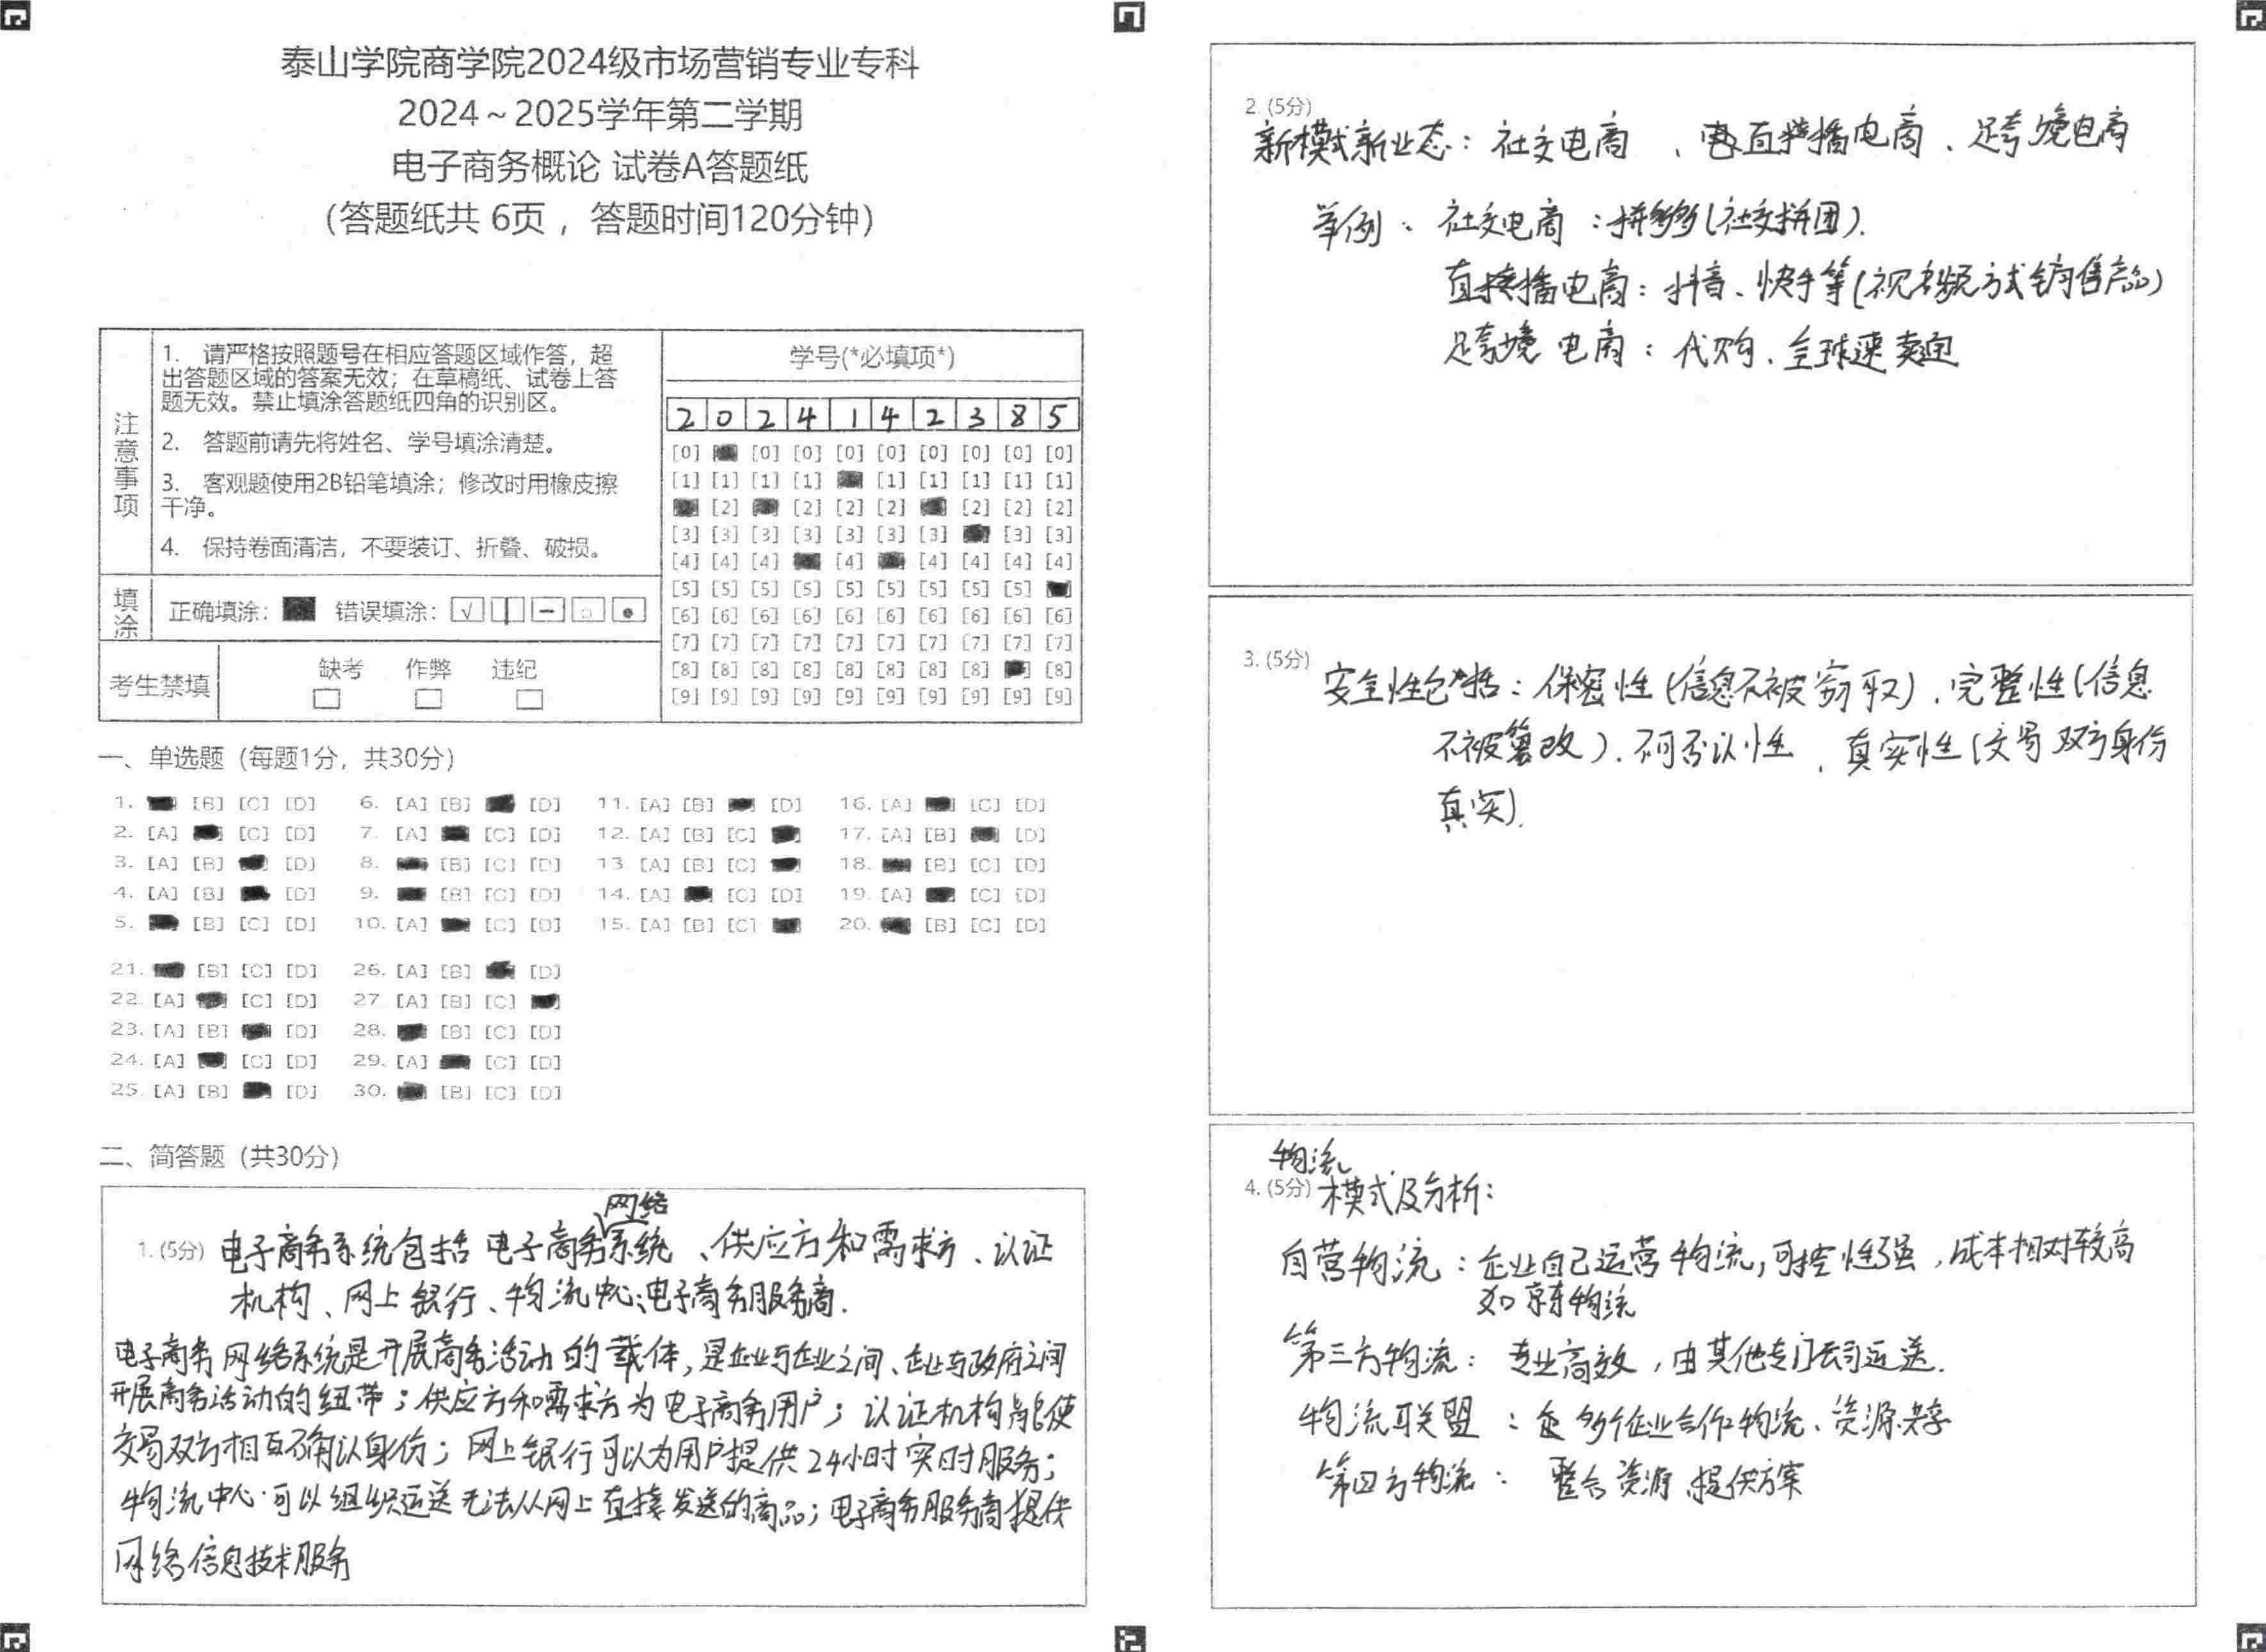 泰山学院商学院2024级市场营销专业专科
2024～2025学年第二学期
电子商务概论 试卷A答题纸
（答题纸共 6页 ，答题时间120分钟）
注意事项
1. 请严格按照题号在相应答题区域作答，超
出答题区域的答案无效；在草稿纸、试卷上答
题无效。禁止填涂答题纸四角的识别区。
2. 答题前请先将姓名、学号填涂清楚。
3. 客观题使用2B铅笔填涂；修改时用橡皮擦
干净。
4. 保持卷面清洁，不要装订、折叠、破损。
填涂
正确填涂： 错误填涂：
考生禁填
缺考 作弊 违纪
学号(*必填项*)
2 0 2 4 1 4 2 3 8 5
[0] [0] [0] [0] [0] [0] [0] [0] [0]
[1] [1] [1] [1] [1] [1] [1] [1] [1]
[2] [2] [2] [2] [2] [2] [2]
[3] [3] [3] [3] [3] [3] [3] [3] [3]
[4] [4] [4] [4] [4] [4] [4] [4]
[5] [5] [5] [5] [5] [5] [5] [5] [5]
[6] [6] [6] [6] [6] [6] [6] [6] [6] [6]
[7] [7] [7] [7] [7] [7] [7] [7] [7] [7]
[8] [8] [8] [8] [8] [8] [8] [8] [8]
[9] [9] [9] [9] [9] [9] [9] [9] [9] [9]
一、单选题（每题1分，共30分）
1. [B] [C] [D] 6. [A] [B] [D] 11. [A] [B] [D] 16. [A] [C] [D]
2. [A] [C] [D] 7. [A] [C] [D] 12. [A] [B] [C] 17. [A] [B] [D]
3. [A] [B] [D] 8. [B] [C] [D] 13 [A] [B] [C] 18. [B] [C] [D]
4. [A] [B] [D] 9. [B] [C] [D] 14. [A] [C] [D] 19. [A] [C] [D]
5. [B] [C] [D] 10. [A] [C] [D] 15. [A] [B] [C] 20. [B] [C] [D]
21. [B] [C] [D] 26. [A] [B] [D]
22. [A] [C] [D] 27 [A] [B] [C]
23. [A] [B] [D] 28. [B] [C] [D]
24. [A] [C] [D] 29. [A] [C] [D]
25. [A] [B] [D] 30. [B] [C] [D]
二、简答题（共30分）
网络
1. (5分) 电子商务系统包括 电子商务系统 、供应方和需求方、认证
机构、网上银行、物流中心、电子商务服务商.
电子商务网络系统是开展商务活动的载体,是企业与企业之间、企业与政府之间
开展商务活动的纽带；供应方和需求方为电子商务用户；认证机构能使
交易双方相互确认身份；网上银行可以为用户提供24小时实时服务；
物流中心可以组织运送无法从网上直接发送的商品；电子商务服务商提供
网络信息技术服务
2. (5分)
新模式新业态：社交电商 、直播电商、跨境电商
举例： 社交电商：拼多多(社交拼团).
直播电商：抖音、快手等(视频方式销售产品)
跨境电商：代购、全球速卖通
3. (5分) 安全性包括：保密性(信息不被窃取)、完整性(信息
不被篡改)、不可否认性 、真实性(交易双方身份
真实).
物流
4. (5分) 模式及分析：
自营物流：企业自己运营物流,可控性强,成本相对较高
如京东物流
第三方物流：专业高效，由其他专门公司运送.
物流联盟：多个企业合作物流、资源共享
第四方物流：整合资源、提供方案